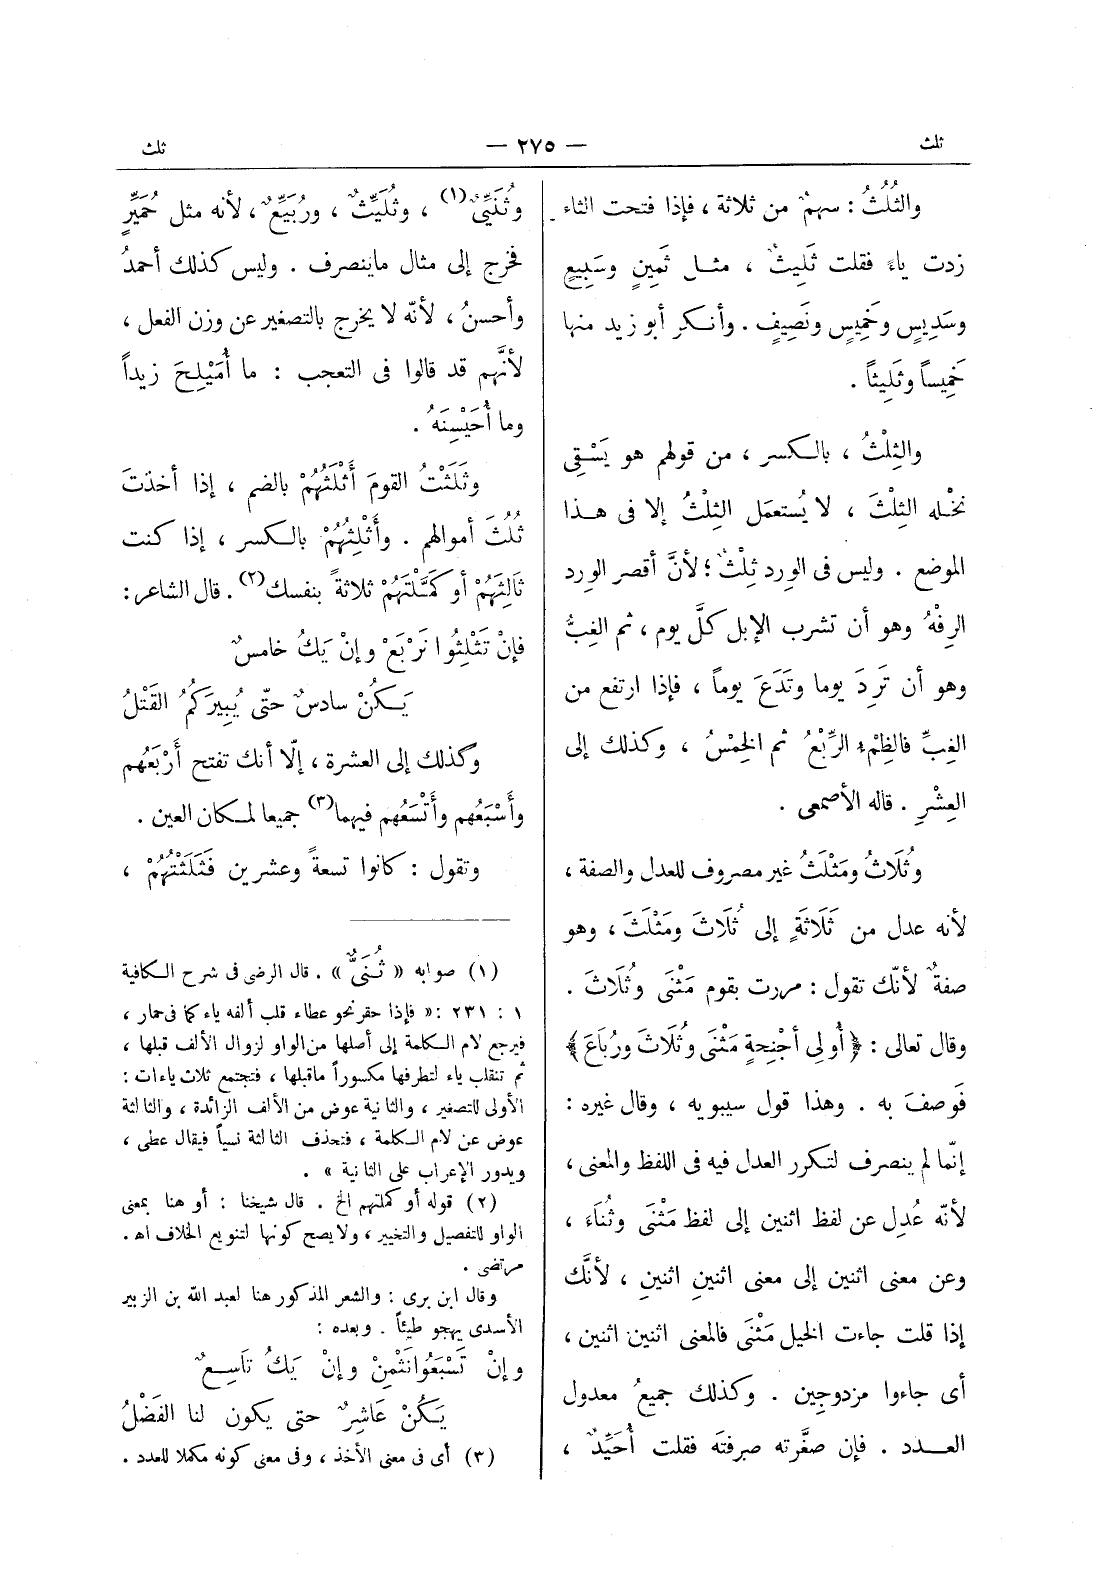 ثلث
— ٢٧٥ —
ثلث
والثُلُثُ : سهمٌ من ثلاثة ، فإذا فتحت الثاء
زدت ياءً فقلت ثَلِيثٌ ، مثـل ثَمِينٍ وسَبِيعٍ
وسَدِيسٍ وخَمِيسٍ ونَصِيفٍ . وأنـكر أبو زيد منها
خَمِيساً وثَلِيثاً .
والثِلْثُ ، بالـكسر ، من قولهم هو يَسْـقِى
نخـْله الثِلْثَ ، لا يُستعمَل الثِلْثُ إلا فى هـذا
الموضع . وليس فى الوِرد ثِلْثٌ ؛ لأنَّ أقصر الوِرد
الرِفْهُ وهو أن تشرب الإبل كلَّ يوم ، ثم الغِبُّ
وهو أن تَرِدَ يوما وتَدَعَ يوماً ، فإذا ارتفع من
الغِبِّ فالظِمْء الرِّبْعُ ثم الخِمْسُ ، وكذلك إلى
العِشْرِ . قاله الأصمعى .
وثُلَاثُ ومَثْلَثُ غير مصروف للعدل والصفة ،
لأنه عدل من ثَلَاثَةٍ إلى ثُلَاثَ ومَثْلَثَ ، وهو
صفةٌ لأنّك تقول : مررت بقوم مَثْنَى وثُلَاثَ .
وقال تعالى : ﴿ أُولِى أجْنِحةٍ مَثْنَى وثُلَاثَ ورُبَاعَ ﴾
فَوصفَ به . وهذا قول سيبويه ، وقال غيره :
إنّما لم ينصرف لتكرر العدل فيه فى اللفظ والمعنى ،
لأنّه عُدِل عن لفظ اثنين إلى لفظ مَثْنَى وثُنَاءَ ،
وعن معنى اثنين إلى معنى اثنينِ اثنينِ ، لأنَّك
إذا قلت جاءت الخيل مَثْنَى فالمعنى اثنين اثنين ،
أى جاءوا مزدوجين . وكذلك جميعُ معدول
العـدد . فإن صغَّرته صرفتَه فقلت أُحَيِّدٌ ،
وثُنَيٌِّ(١) ، وثُلَيِّثٌ ، ورُبَيِّعٌ ، لأنه مثل حُمَيِّرٍ
فخرج إلى مثال ماينصرف . وليس كذلك أحمدُ
وأحسنُ ، لأنّه لا يخرج بالتصغير عن وزن الفعل ،
لأنَّهم قد قالوا فى التعجب : ما أُمَيْلِحَ زيداً
وما أُحَيْسِنَهُ .
وثَلَثْتُ القومَ أَثْلُثُهُمْ بالضم ، إذا أخذتَ
ثُلُثَ أموالهم . وأَثْلِثُهُمْ بالـكسر ، إذا كنت
ثَالِثَهُمْ أو كَمَّلْتَهُمْ ثلاثةً بنفسك(٢) . قال الشاعر :
فإنْ تَثْلِثُوا نَرْبَعْ وإنْ يَكُ خامسٌ
يَـكُنْ سادسٌ حتّى يُبِيرَكُمُ القَتْلُ
وكذلك إلى العشرة ، إلّا أنك تفتح أَرْبَعُهم
وأَسْبَعُهم وأَتْسَعُهم فيهما(٣) جميعا لمكان العين .
وتقول : كانوا تسعةً وعشرين فَثَلَثْتُهُمْ ،
(١) صوابه « ثُنَىٌّ » . قال الرضى فى شرح الـكافية
١ : ٢٣١ : « فإذا حقر نحو عطاء قلب ألفه ياء كما فى حمار ،
فيرجع لام الـكلمة إلى أصلها من الواو لزوال الألف قبلها ،
ثم تنقلب ياء لتطرفها مكسوراً ماقبلها ، فتجتمع ثلاث ياءات :
الأولى للتصغير ، والثانية عوض من الألف الزائدة ، والثالثة
عوض عن لام الكلمة ، فتحذف الثالثة نسياً فيقال عطى ،
ويدور الإعراب على الثانية » .
(٢) قوله أو كملتهم الخ . قال شيخنا : أو هنا بمعنى
الواو للتفصيل والتخيير ، ولايصح كونها لتنويع الخلاف اه .
مرتضى .
وقال ابن برى : والشعر المذكور هنا لعبد الله بن الزبير
الأسدى يهجو طيئاً . وبعده :
وإنْ تَسْبَعُوا نَثْمِنْ وإنْ يَكُ تَاسِـعٌ
يَـكُنْ عَاشِرٌ حتى يكون لنا الفَضْلُ
(٣) أى فى معنى الأخذ ، وفى معنى كونه مكملا للعدد .